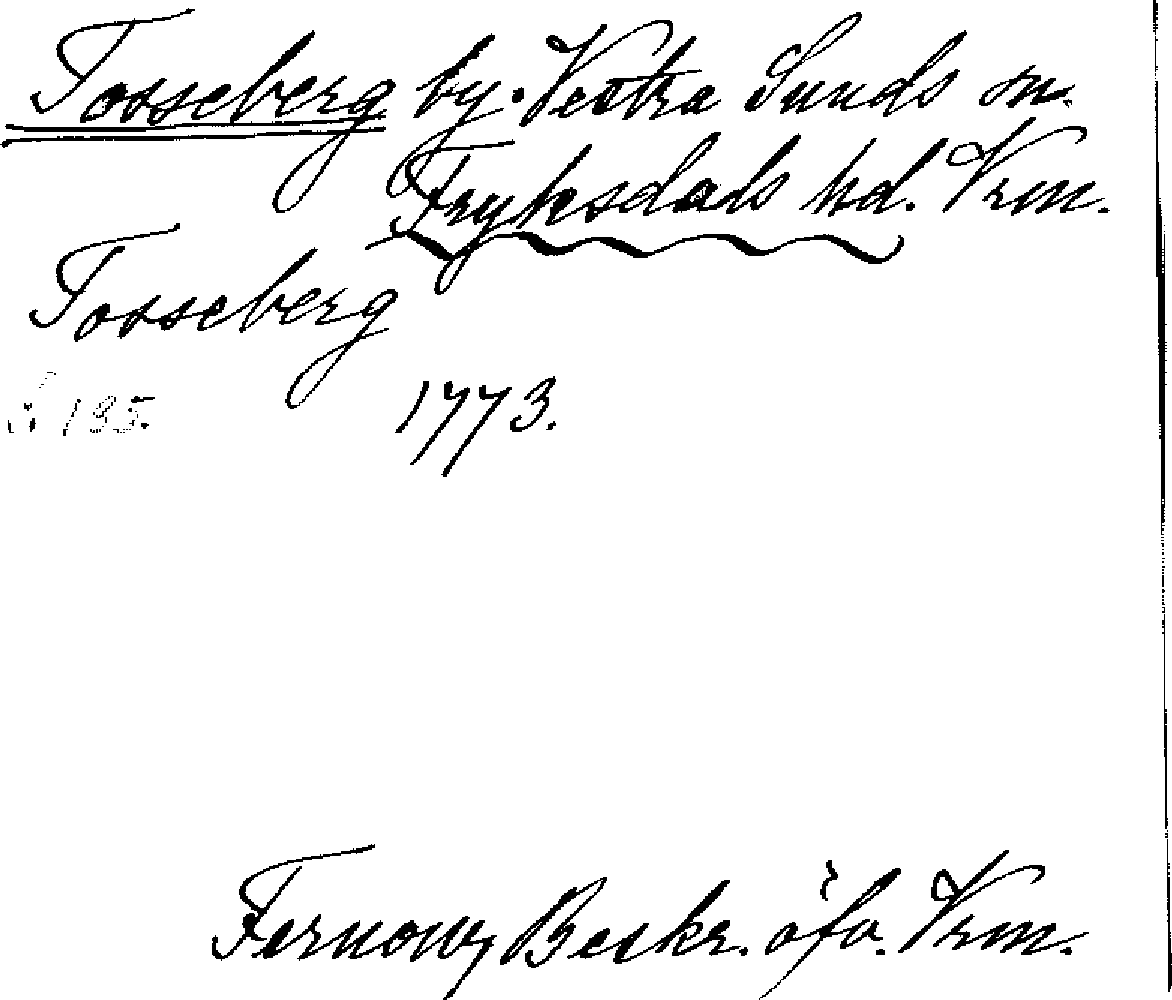 Tosseberg by. Vestra Sunds sn.
Fryksdals hd. Vrm.
Tosseberg
S. 195.
1773.
Fernows Beskr. öfv. Vrm.